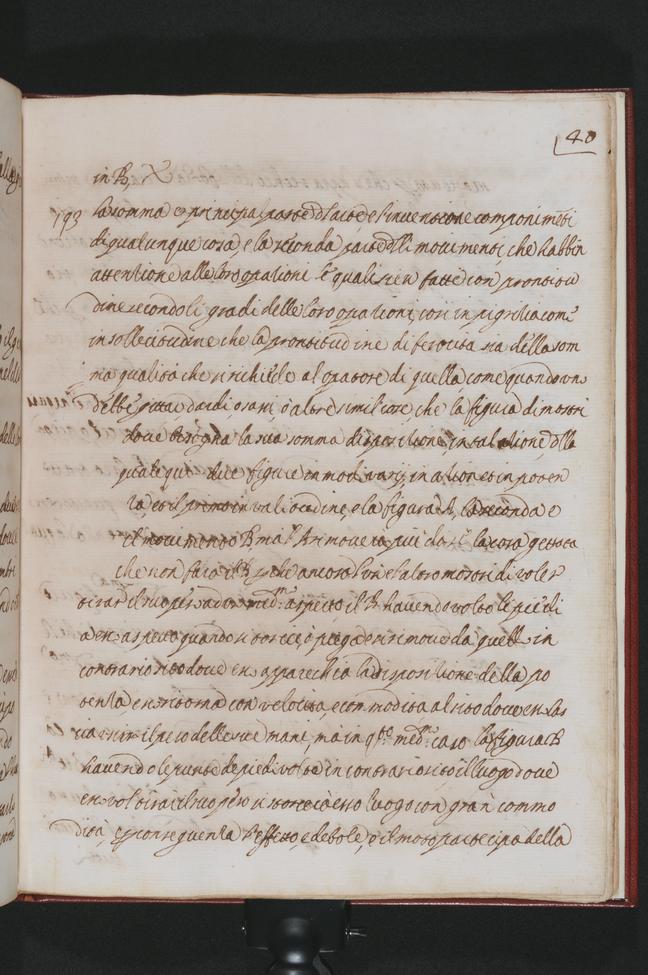 40
in B, X
193 la somma e principal parte dl'arte e l'inventione componimēti
di qualunque cosa e la seconda parte dlli movimenti, che habbin
attentione alle loro opationi le quali sien fatte con prontitu
dine secondo li gradi delle loro opationi, così in pigritia, com'
in sollecitudine che la prontitudine di ferocita sia della som
ma qualità che si richiede al opatore di quella come quando un
debbe gittar dardi o sassi, o altre simil' cose che la figura dimostri
dove bisogna la sua somma dispositione, in tal atione, dlla
quale qui due figure in modi varij in atione et in poten
tia, et il primo in valitudine, e la figura A, la seconda e
il movimento B, ma l'A rimovera più da se la cosa gettata
che non fara il B, pche ancora che l'un e l'altro mostri di voler
tirar il suo peso ad un med.º aspetto, il A havendo volto li piedi
a esso aspetto quando si torce, o piega et si rimove da quello in
contrario sito dove esso apparecchia la dispositione della po
tentia, esso ritorna con velocita, e commodita al sito dove esso las
cia uscir il peso delle sue mani, ma in q.to med.º caso la figura B
havendo le punte de piedi volte in contrario sito il luogo dove
esso vol tirar il suo peso si storce a esso luogo con gran commo
dità, e p conseguentia l'effetto, e debole, e il moto partecipa della